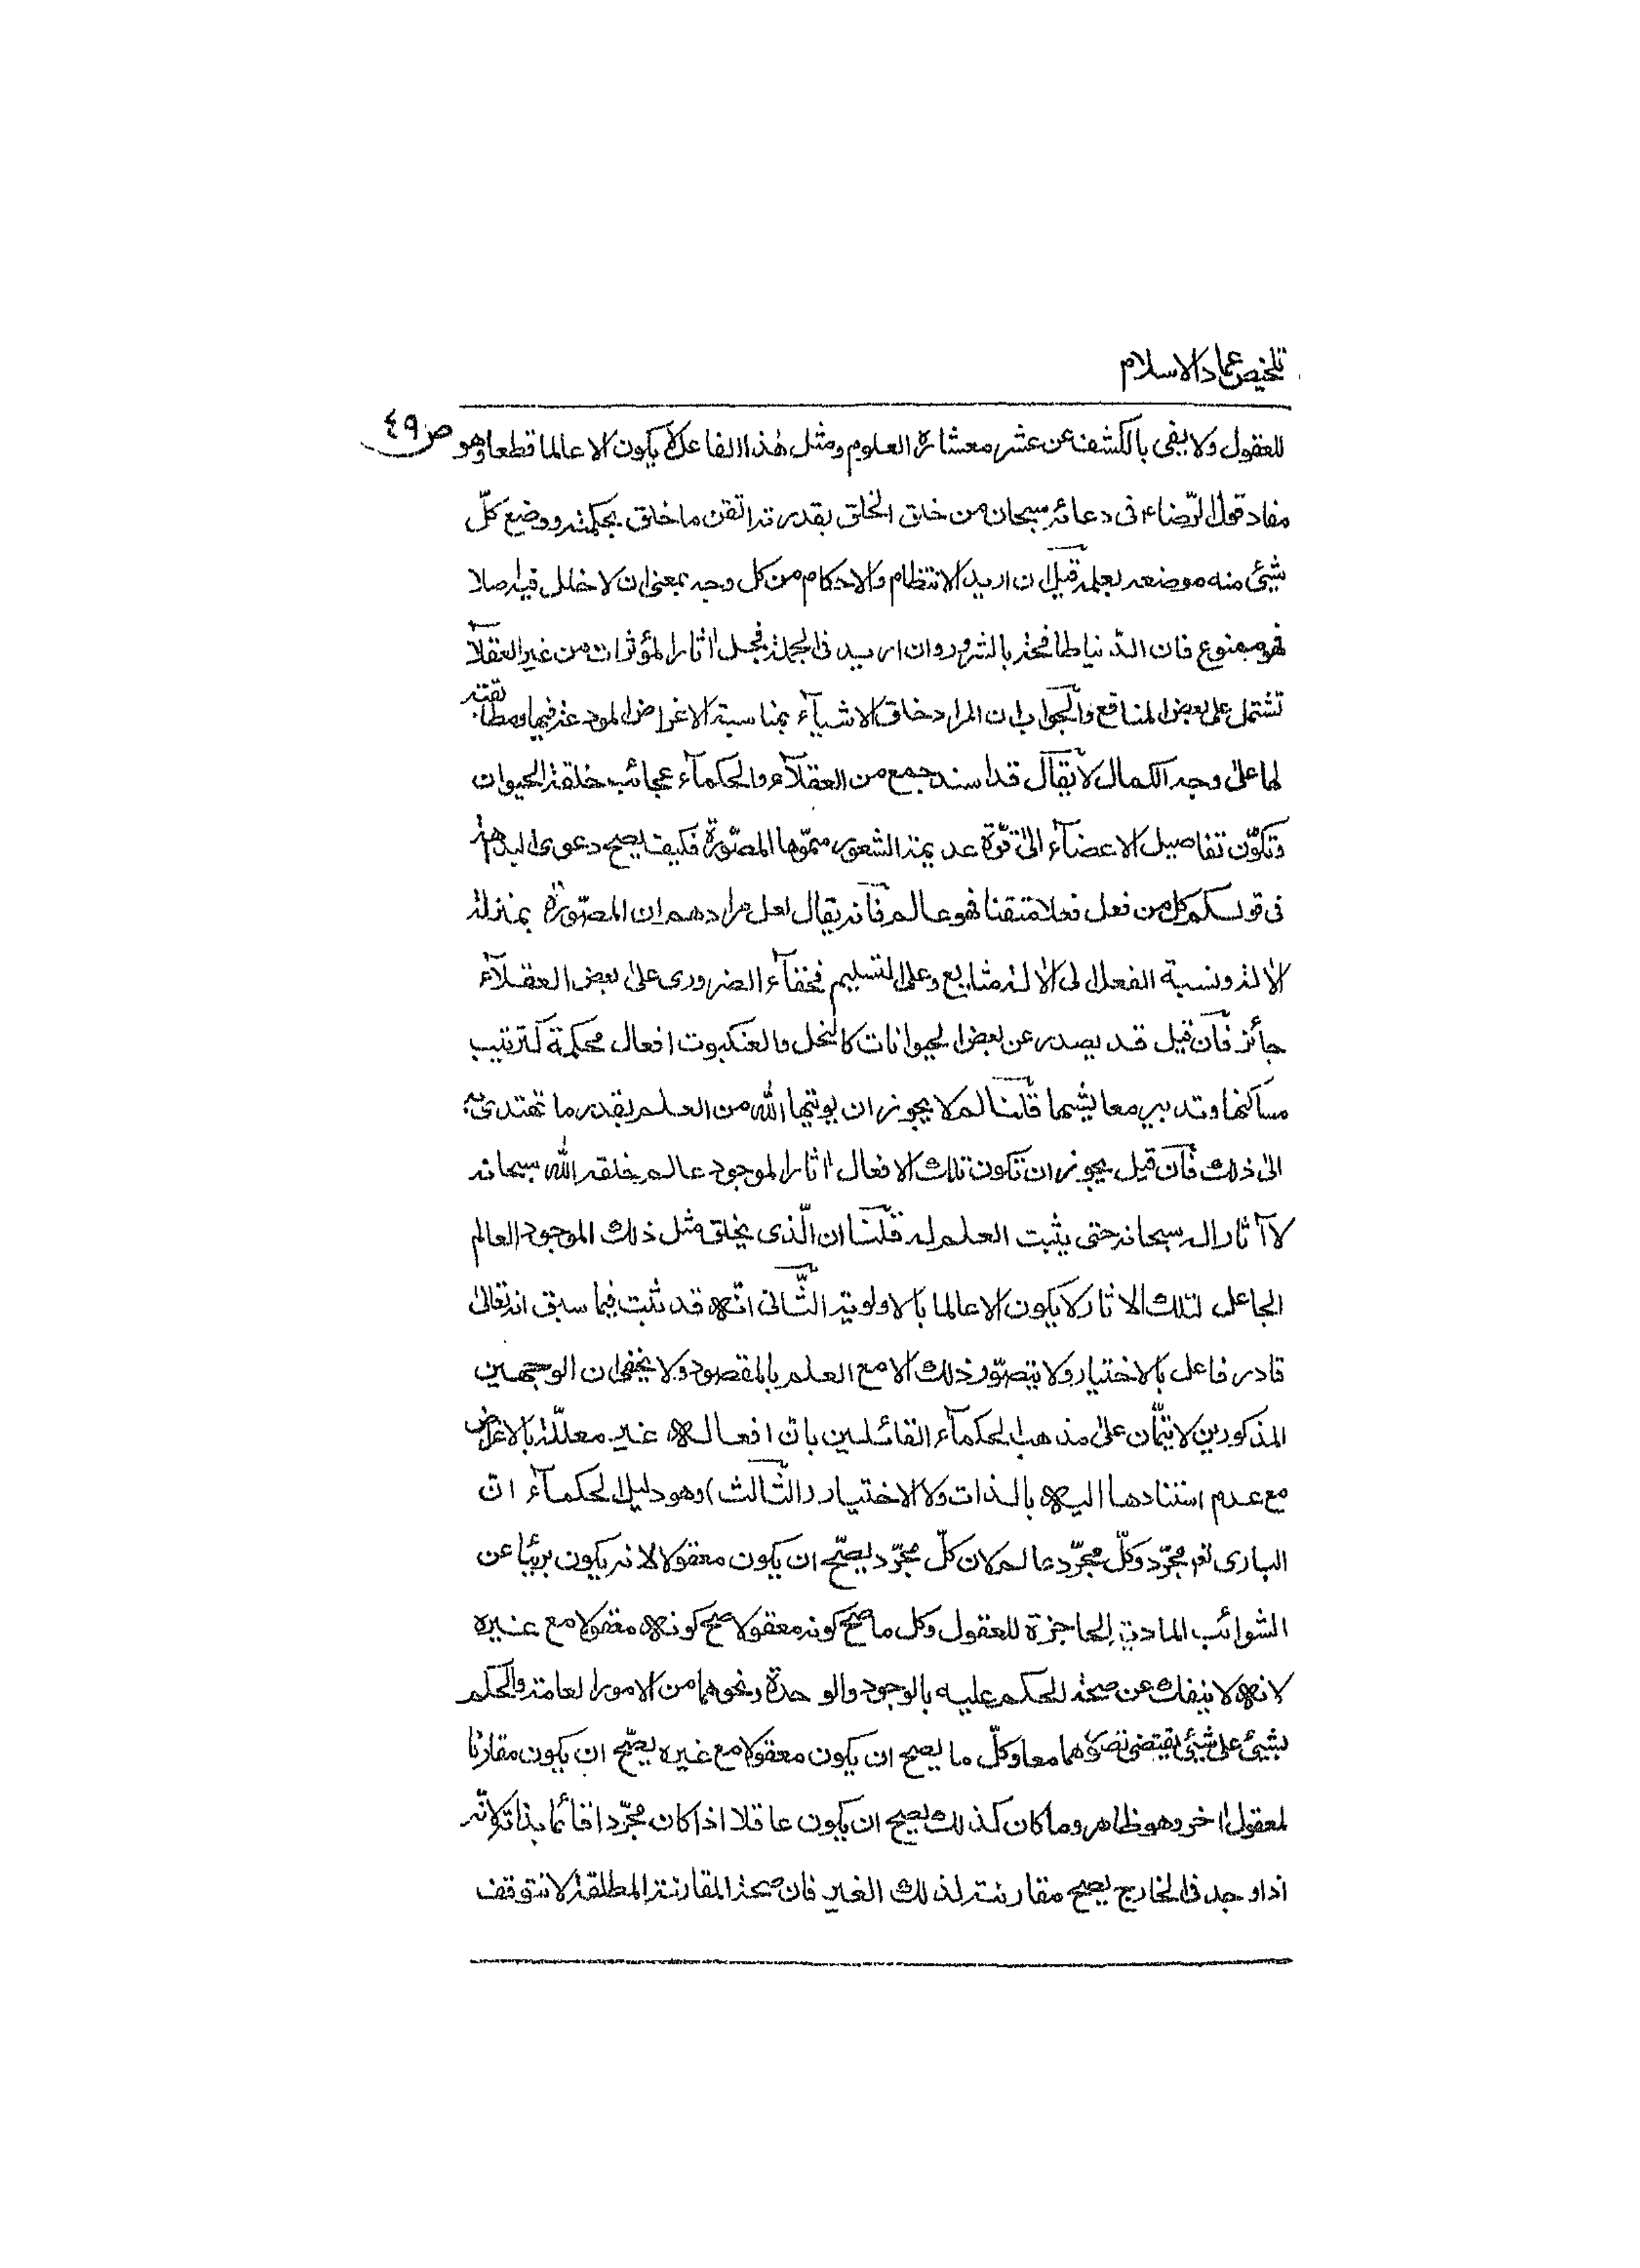 تلخيص عماد الاسلام
ص٤٩
للعقول ولا يفى بالكشف عن عشر معشاره العلوم ومثل هذا الفاعل لا يكون الا عالما قطعا وهو
مفاد قول الرّضاء فى دعائه سبحان من خلق الخلق بقدرته اتقن ما خلق بحكمته ووضع كلّ
شيئ منه موضعه بعلمه قيل ان اريد الانتظام والاحكام من كل وجه بمعنى ان لا خلل فيه اصلا
فهو ممنوع فان الدّنيا طافحة بالشرور وان اريد فى الجملة فجل اثار المؤثرات من غير العقلآ
تشتمل على بعض المنافع والجواب ان المراد خلق الاشيآء بمناسبة الاغراض المودعة فيها ومطابقته
لها على وجه الكمال لا يقال قد اسند جمع من العقلآء والحكمآء عجائب خلقة الحيوان
وتكوّن تفاصيل الاعضآء الى قوّة عديمة الشعور سمّوها المصّورة فكيف يصح دعوى البداهة
فى قولكم كل من فعل فعلا متقنا فهو عالم فانه يقال لعل مرادهم ان المصّورة بمنزلة
الالة ونسبة الفعل الى الالة شايع وعلى التسليم فخفآء الضرورى على بعض العقلآء
جائز فان قيل قد يصدر عن بعض الحيوانات كالنحل والعنكبوت افعال محكمة كترتيب
مساكنها وتدبير معايشها قلنا لم لا يجوز ان يوتيها الله من العلم بقدر ما تهتدى به
الى ذلك فان قيل يجوز ان تكون تلك الافعال اثار الموجود عالم خلقه الله سبحانه
لا آثار اله سبحانه حتى يثبت العلم له قلنا ان الّذى يخلق مثل ذلك الموجود العالم
الجاعل لتلك الاثار لا يكون الا عالما بالاولوية الثّانى انّه قد ثبت فيما سبق انه تعالى
قادر فاعل بالاختيار ولا يتصوّر ذلك الا مع العلم بالمقصود ولا يخفى ان الوجهين
المذكورين لا يتمّان على مذهب الحكمآء القائلين بان افعاله غير معللّة بالاغراض
مع عدم استنادها اليه بالذات ولا الاختيار (الثّالث) وهو دليل الحكمآء ان
البارى تعم مجرّد وكلّ مجرّد عالم لان كلّ مجرّد يصحّ ان يكون معقولا لانه يكون بريًا عن
الشوائب المادية الحاجزة للعقول وكل ما صح كونه معقولا صح كونه معقولا مع غيره
لانه لا ينفك عن صحة الحكم عليه بالوجود والوحدة ونحوهما من الامور العامة والحكم
بشيئ على شيئ يقتضى تصوّرهما معا وكلّ ما يصح ان يكون معقولا مع غيره يصحّ ان يكون مقارنا
لمعقول اخر وهو ظاهر وما كان كذلك يصح ان يكون عاقلا اذا كان مجرّدا قائما بذاته لانّه
اذا وجد فى الخارج يصح مقارنته لذلك الغير فان صحة المقارنة المطلقة لا تتوقف